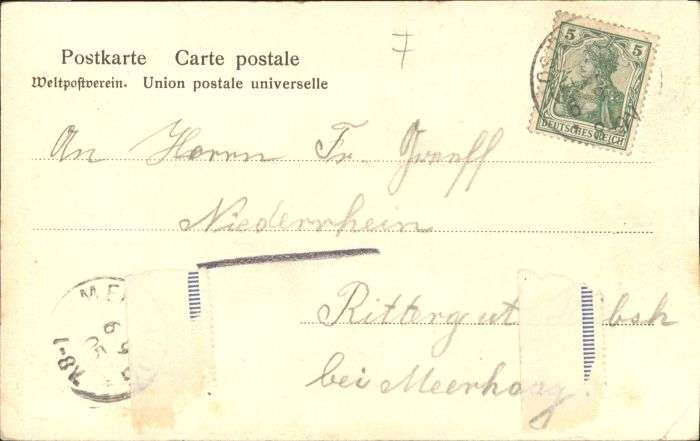 Postkarte Carte postale
Weltpostverein. Union postale universelle
7
5 5
DEUTSCHES REICH
An Herrn Fr. Graeff
Niederrhein
Rittergut
bei Meerhoog.